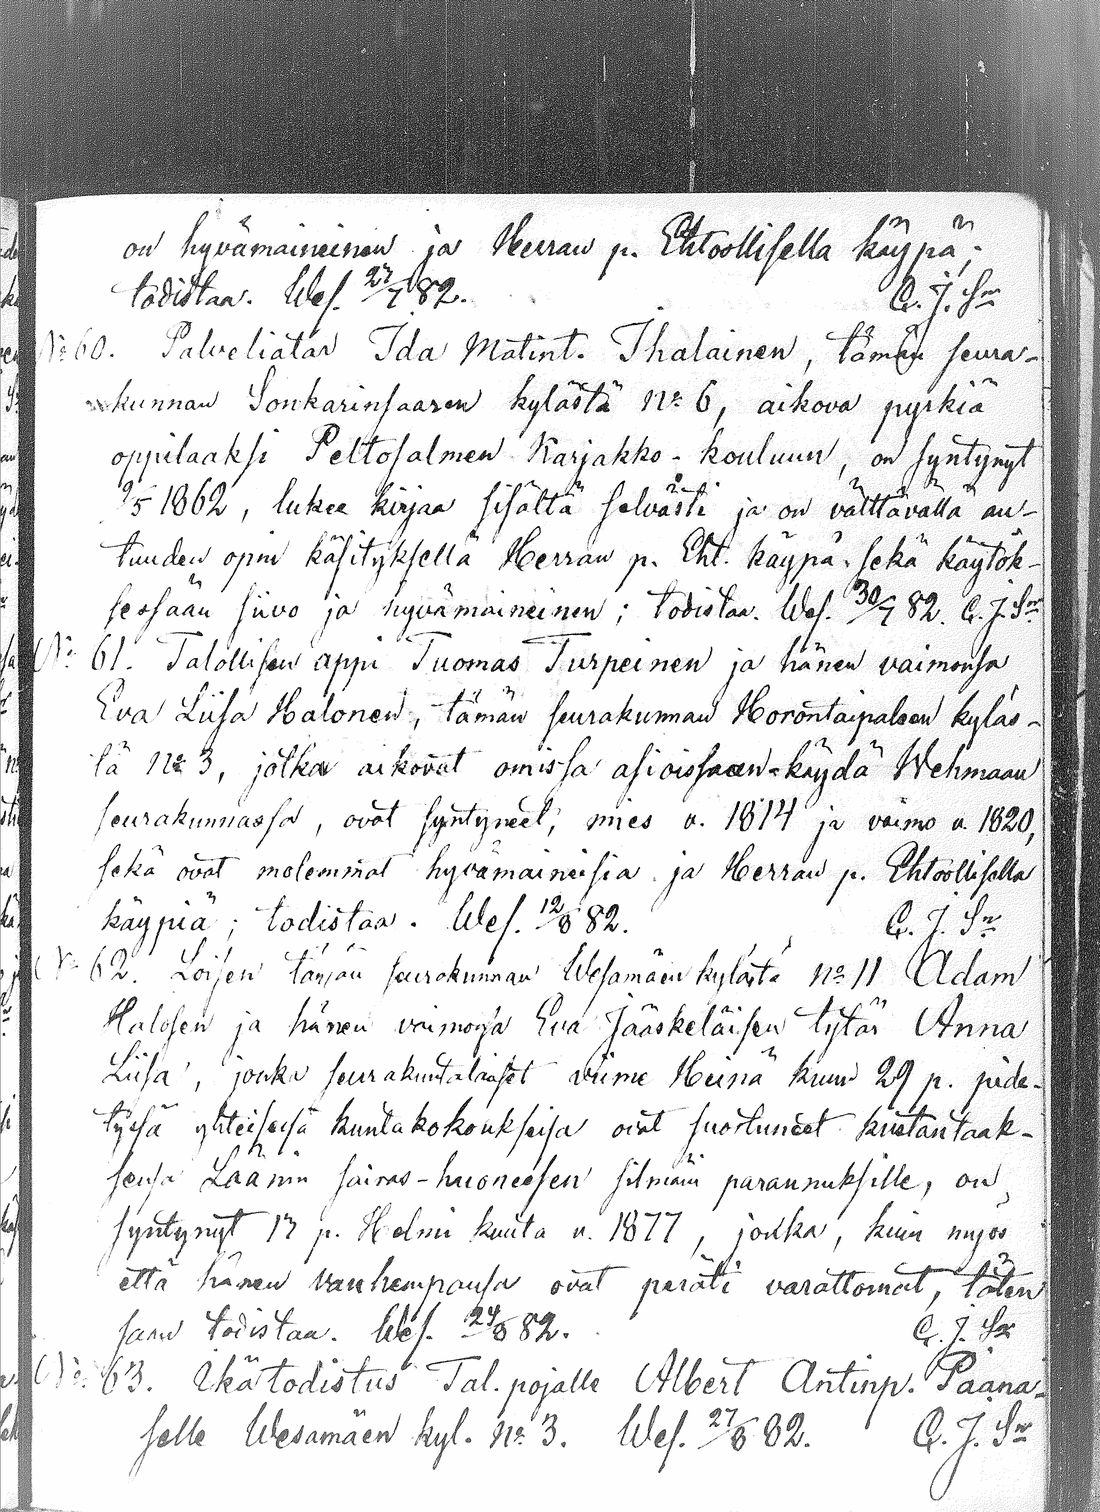 on hyvämaineinen ja Herran p. Ehtoollisella käypä;
todistaa. Wes. 27/7 82. C. J. Sn
No 60. Palveliatar Ida Matint. Ihalainen, tämän seura-
kunnan Sonkarinsaaren kylästä No 6, aikova pyrkiä
oppilaaksi Peltosalmen Karjakko-kouluun, on syntynyt
9/5 1862, lukee kirjaa sisältä selvästi ja on välttävällä au-
tuuden opin käsityksellä Herran p. Eht. käypä sekä käytök-
sessään siivo ja hyvämaineinen; todistaa. Wes. 30/7 82. C. J. Sn
No 61. Talollisen appi Tuomas Turpeinen ja hänen vaimonsa
Eva Liisa Halonen, tämän seurakunnan Horontaipaleen kyläs-
tä No 3, jotka aikovat omissa asioissaan käydä Wehmaan
seurakunnassa, ovat syntyneet, mies v. 1814 ja vaimo v. 1820,
sekä ovat molemmat hyvämaineisia ja Herran p. Ehtoollisella
käypiä; todistaa. Wes. 12/8 82. C. J. Sn
No 62. Loisen tämän seurakunnan Wesamäen kylästä No 11 Adam
Halosen ja hänen vaimonsa Eva Jääskeläisen tytär Anna
Liisa, jonka seurakuntalaiset viime Heinä kuun 29 p. pide-
tyssä yhteisessä kuntakokouksessa ovat suostuneet kustantaak-
sensa Läänin sairas-huoneesen silmäin parannuksille, on
syntynyt 17 p. Helmi kuuta v. 1877, jonka, kuin myös
että hänen vanhempansa ovat peräti varattomat, täten
saan todistaa. Wes. 24/8 82. C. J. Sn
No 63. Ikätodistus Tal. pojalle Albert Antinp. Paana-
selle Wesamäen kyl. No 3. Wes. 27/8 82. C. J. Sn